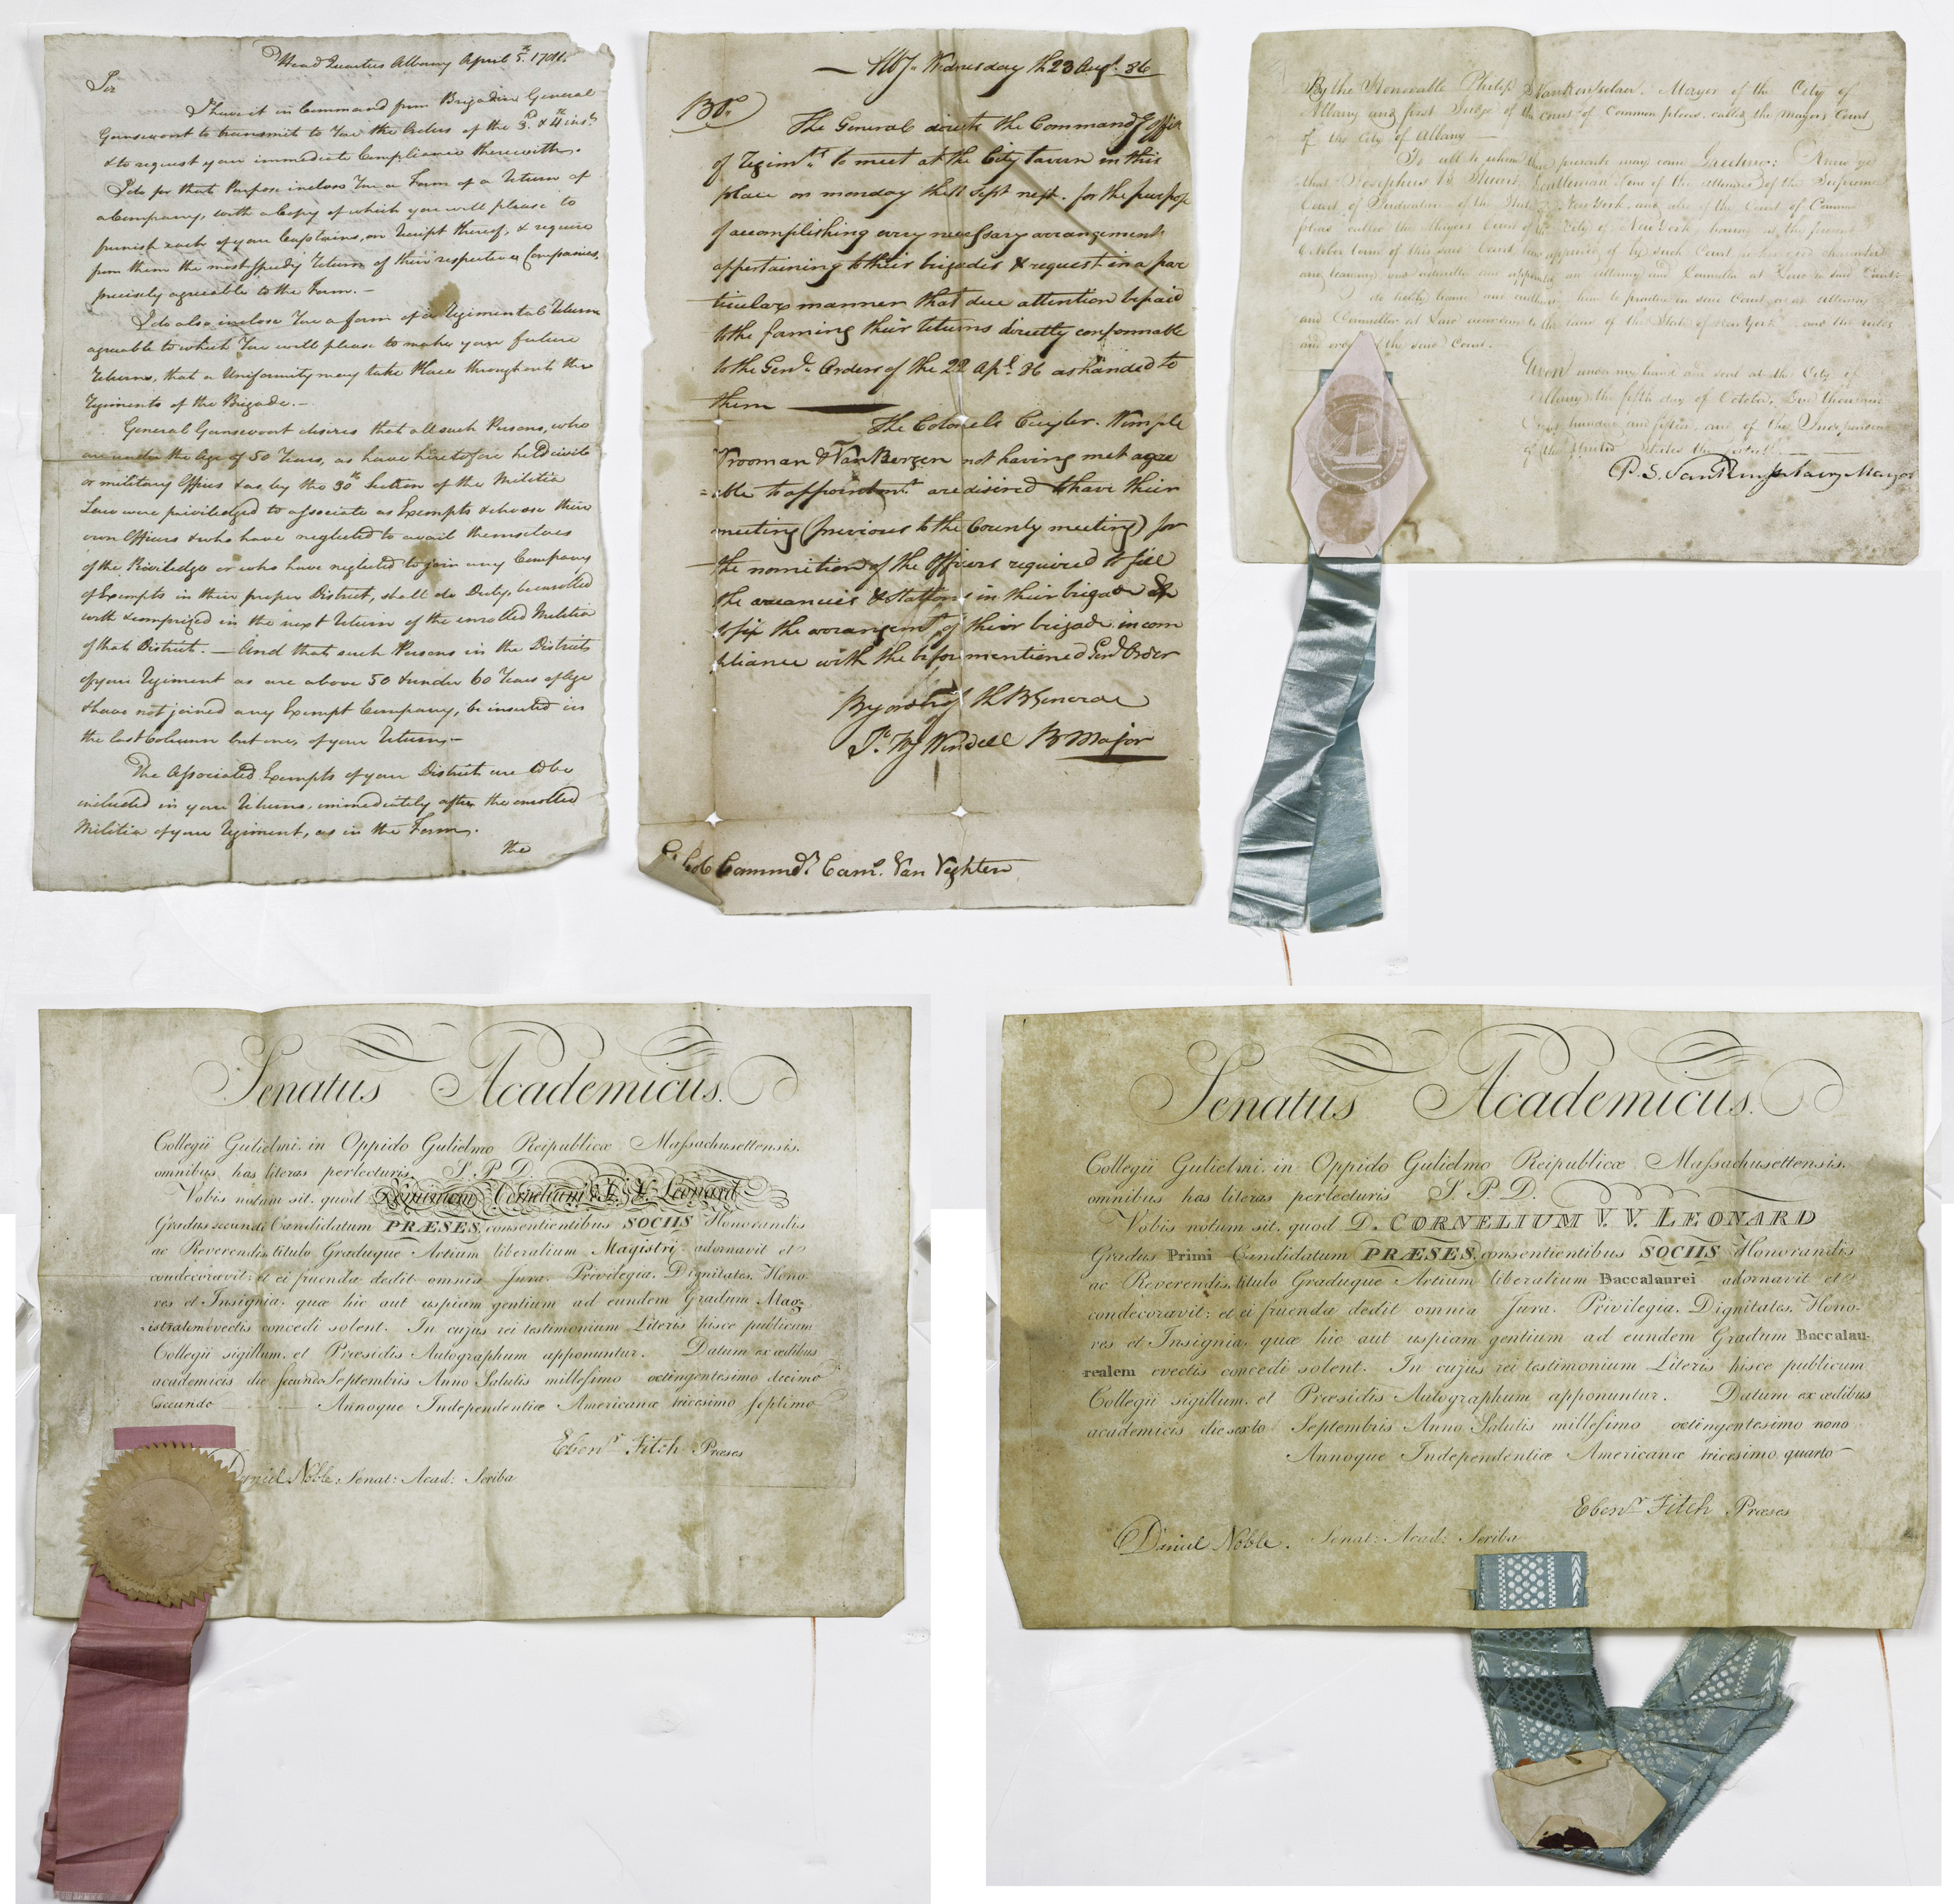 Head Quarters Albany April 5th.
Sir
I have it in Command from Brigadier General
Gansevoort to transmit to You the Orders of the 3d. & 4th inst.
& to request your immediate Compliance therewith.
I do for that Purpose inclose You a Form of a Return of
a Company, with a Copy of which you will please to
furnish each of your Captains, on Receipt thereof, & require
from them the most speedy Return of their respective Companies,
precisely agreable to the Form. —
I do also inclose You a form of a Regimental Return
agreable to which You will please to make your future
Returns, that a Uniformity may take Place throughout the
Regiments of the Brigade. —
General Gansevoort desires that all such Persons, who
are under the Age of 50 Years, as have heretofore held civil
or military Offices & as by the 30th Section of the Militia
Law were priviledged to associate as Exempts & choose their
own Officers & who have neglected to avail themselves
of the Priviledge or who have neglected to join any Company
of Exempts in their proper District, shall do Duty, be enrolled
with & comprized in the next Return of the enrolled Militia
of that District. — And that such Persons in the Districts
of your Regiment as are above 50 & under 60 Years of Age
& have not joined any Exempt Company, be inserted in
the last Column but one, of your Return. —
The Associated Exempts of your District are to be
included in your Returns, immediately after the enrolled
Militia of your Regiment, as in the Form.
the
Wednesday th 23 Augt. 86
BO.
The General directs the Commandg Officer
of Regimts. to meet at the City tavern in this
place on monday the 11 Sept next. for the purpose
of accomplishing every necessary arrangement
appertaining to their brigades & request in a par
ticular manner that due attention be paid
to the farming their returns directly conformable
to the Genl. Orders of the 22 Apl. 86 as handed to
them
The Colonels Cuyler. Wimple
Vrooman & Van Bergen not having met agre
=able to appointmt. are disired to have their
meeting (previous to the County meeting) for
the nomition of the Officers required to fill
the vacancies & stations in their brigade &
to fix the arrangemt. of their brigade in com
pliance with the before mentioned Genl Order
By order of th B General
Jn. W Wendell B Major
Col Commdt. Corns. Van Veghten
By the Honorable Philip S Van Rensselaer. Mayor of the City of
Albany and first Judge of the court of Common pleas. called the mayors Court
of the City of Albany
To all to whom these presents may come Greeting: Know ye
that Josephus B Stuart Gentleman one of the attornies of the Supreme
Court of Judicature of the State of New York, and also of the Court of Common
pleas called the Mayors Court of the City of New York, having at the present
October term of this said Court been approved of by such Court for his good character
and learning and admitted and appointed an attorney and Counsellor at Law in said Court:
I do hereby licence and authorise him to practice in said Court as an attorney
and Counsellor at Law according to the laws of the State of New York and the rules
and orders of the said Court.
Given under my hand and seal at the City of
Albany the fifth day of October. One thousand
Eight hundred and fifteen, and of the Independence
of the United States the fortieth.
P. S. Van Rensselaer Mayor
Senatus Academicus.
Collegii Gulielmi, in Oppido Gulielmo Reipublicæ Massachusettensis,
omnibus has literas perlecturis S. P. D.
Vobis notum sit, quod Dominum Cornelium V. V. Leonard
Gradus secundi Candidatum PRÆSES, consentientibus SOCIIS Honorandis
ac Reverendis, titulo Graduque Artium liberalium Magistri adornavit et
condecoravit; et ei fruenda dedit omnia Jura, Privilegia, Dignitates, Hono-
res et Insignia, quæ hic aut uspiam gentium ad eundem Gradum Mag-
istralem evectis concedi solent. In cujus rei testimonium Literis hisce publicum
Collegii sigillum, et Præsidis Autographum apponuntur. Datum ex ædibus
academicis die secundo Septembris Anno Salutis millesimo octingentesimo decimo
secundo Annoque Independentiæ Americanæ tricesimo septimo
Ebenr. Fitch Præses
Daniel Noble. Senat: Acad: Scriba
Senatus Academicus.
Collegii Gulielmi, in Oppido Gulielmo Reipublicæ Massachusettensis,
omnibus has literas perlecturis S. P. D.
Vobis notum sit, quod D. CORNELIUM V. V. LEONARD
Gradus Primi Candidatum PRÆSES, consentientibus SOCIIS Honorandis
ac Reverendis, titulo Graduque Artium liberalium Baccalaurei adornavit et
condecoravit; et ei fruenda dedit omnia Jura, Privilegia, Dignitates, Hono-
res et Insignia, quæ hic aut uspiam gentium ad eundem Gradum Baccalau-
realem evectis concedi solent. In cujus rei testimonium Literis hisce publicum
Collegii sigillum, et Præsidis Autographum apponuntur. Datum ex ædibus
academicis die sexto Septembris Anno Salutis millesimo octingentesimo nono
Annoque Independentiæ Americanæ tricesimo quarto
Ebenr. Fitch Præses
Daniel Noble. Senat: Acad: Scriba